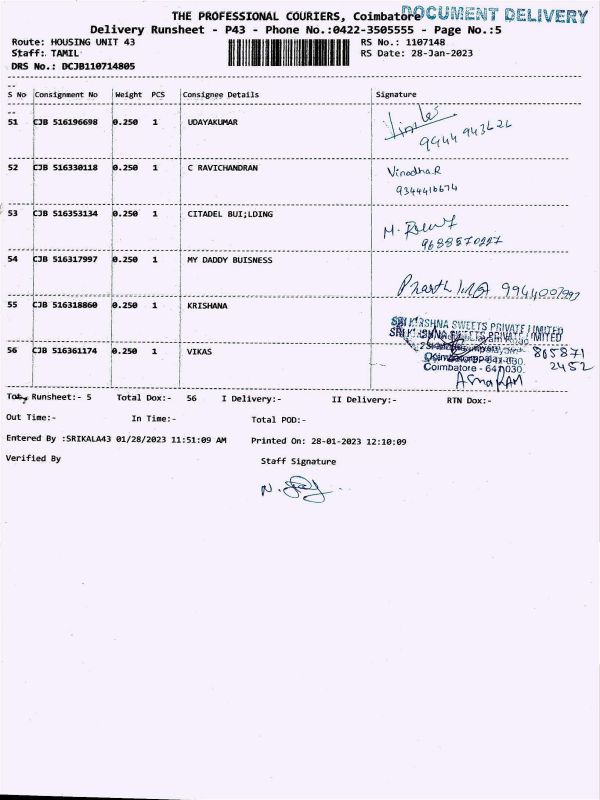 DOCUMENT DELIVERY
THE PROFESSIONAL COURIERS, Coimbatore
Delivery Runsheet - P43 - Phone No.:0422-3505555 - Page No.:5
Route: HOUSING UNIT 43 RS No.: 1107148
Staff: TAMIL RS Date: 28-Jan-2023
DRS No.: DCJB110714805
S No Consignment No Weight PCS Consignee Details Signature
51 CJB 516196698 0.250 1 UDAYAKUMAR
9944 943626
52 CJB 516330118 0.250 1 C RAVICHANDRAN Vinodha.R
9344416674
53 CJB 516353134 0.250 1 CITADEL BUI;LDING M.
9688570227
54 CJB 516317997 0.250 1 MY DADDY BUISNESS
55 CJB 516318860 0.250 1 KRISHANA
SRI KRSHNA SWEETS PRIVATE LIMITED
SRI KRSHNA SWEETS PRIVATE LIMITED
56 CJB 516361174 0.250 1 VIKAS 865871
Coimbatore - 641 030. 2452
Runsheet:- 5 Total Dox:- 56 I Delivery:- II Delivery:- RTN Dox:-
Out Time:- In Time:- Total POD:-
Entered By :SRIKALA43 01/28/2023 11:51:09 AM Printed On: 28-01-2023 12:10:09
Verified By Staff Signature